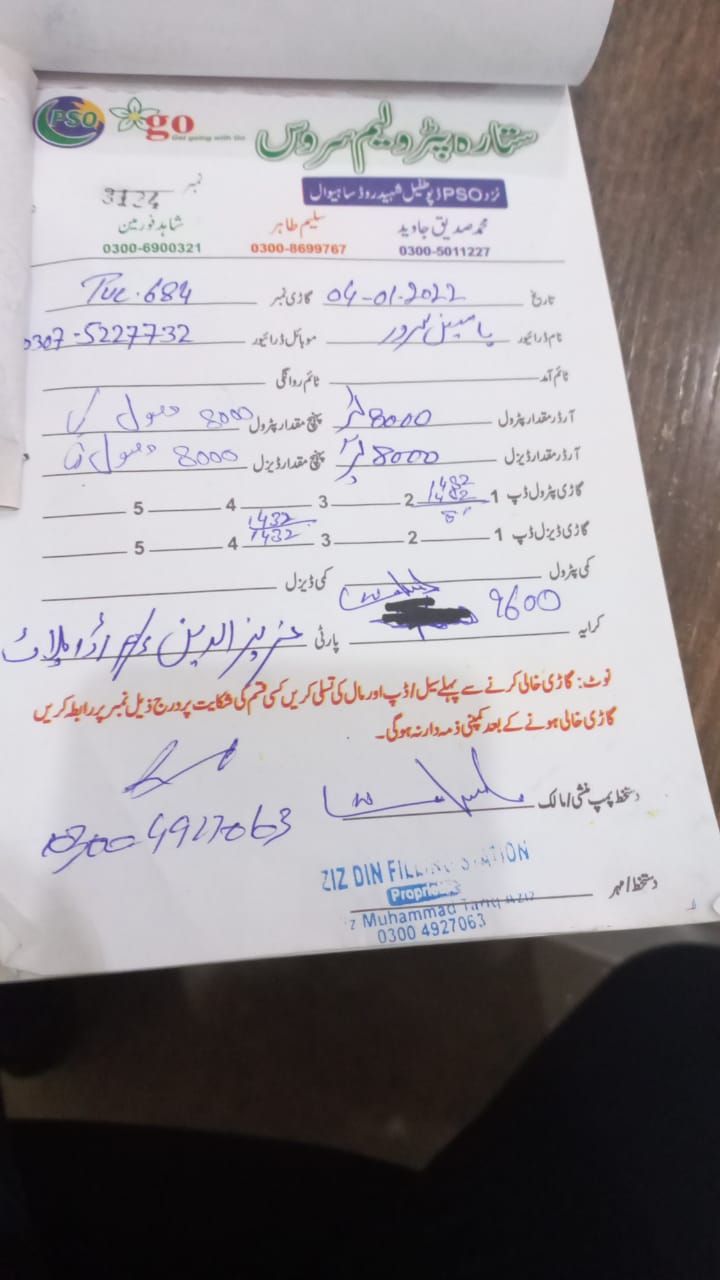 PSO go Get going with Go ستارہ پٹرولیم سروس
نزد PSO ڈپو طفیل شہید روڈ ساہیوال
نمبر 3124
محمد صدیق جاوید سلیم طاہر شاہد فورمین
0300-5011227 0300-8699767 0300-6900321
تاریخ 04-01-2022 گاڑی نمبر 684
نام ڈرائیور یاسین سرور موبائل ڈرائیور 0307-5227732
ٹائم آمد ٹائم روانگی
آرڈر مقدار پٹرول 8000 لیٹر پہنچ مقدار پٹرول 8000 وصول
آرڈر مقدار ڈیزل 8000 لیٹر پہنچ مقدار ڈیزل 8000 وصول
گاڑی پٹرول ڈپ 1 2 3 4 5
گاڑی ڈیزل ڈپ 1 2 3 1432 1432 4 5
کمی پٹرول کمی ڈیزل
کرایہ 9600 پارٹی عزیز الدین
نوٹ: گاڑی خالی کرنے سے پہلے سیل/ڈپ اور مال کی تسلی کریں کسی قسم کی شکایت پر درج ذیل نمبر پر رابطہ کریں
گاڑی خالی ہونے کے بعد کمپنی ذمہ دار نہ ہوگی۔
دستخط پمپ منشی/مالک
0300-4927063
ZIZ DIN FILLING STATION
دستخط/مہر
Muhammad Tariq Aziz
0300 4927063